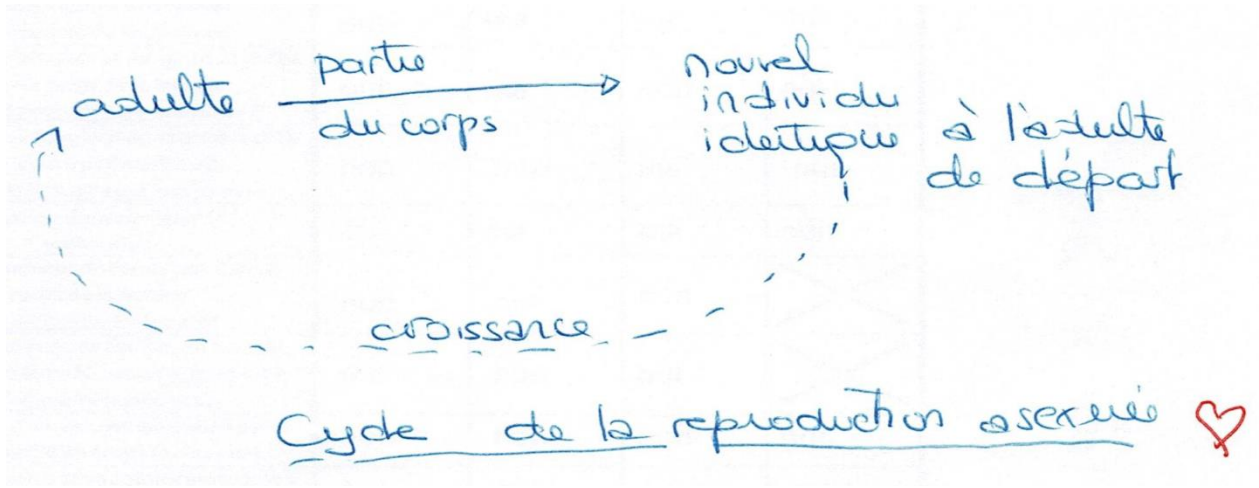 adulte
partie
du corps
nouvel
individu
identique à l'adulte
de départ
croissance
Cycle de la reproduction asexuée